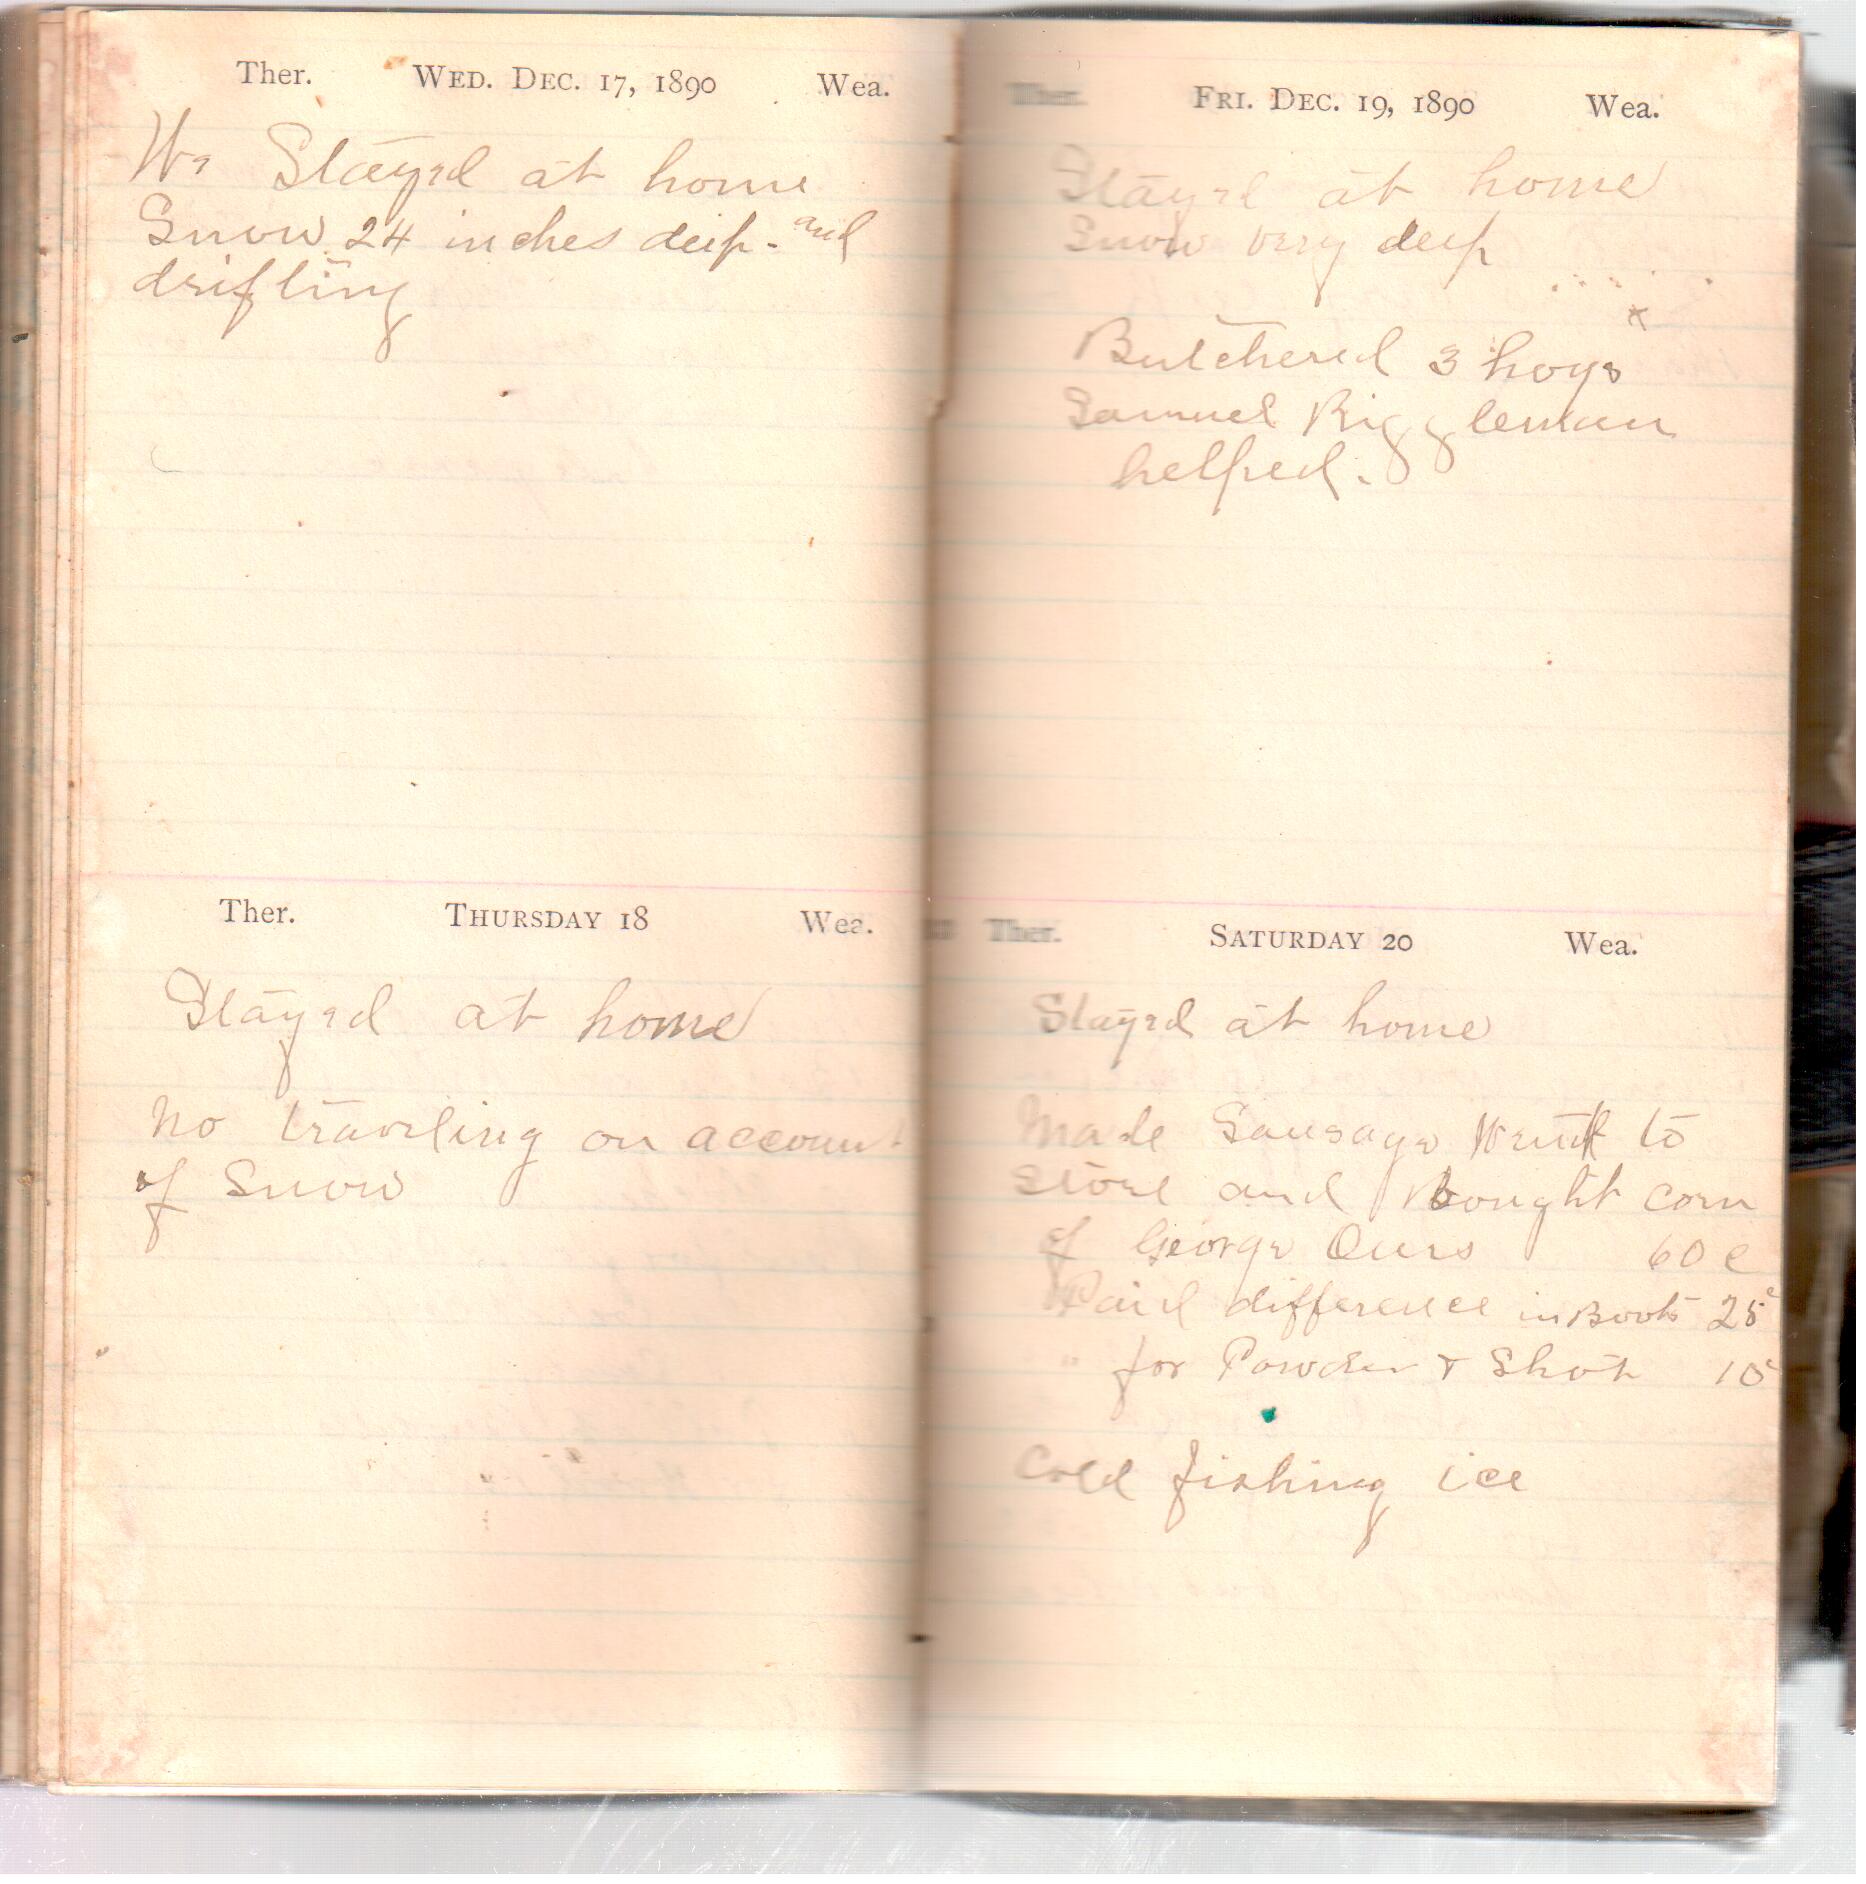 Ther. WED. DEC. 17, 1890 Wea.
We Stayed at home
Snow 24 inches deep - and
drifting
Ther. THURSDAY 18 Wea.
Stayed at home
No traveling on account
of Snow
Ther. FRI. DEC. 19, 1890 Wea.
Stayed at home
Snow very deep
Butchered 3 hogs
Samuel Riggleman
helped.
Ther. SATURDAY 20 Wea.
Stayed at home
Made Sausage Went to
Store and bought corn
of George Ours 60 c
Paid difference in Boots 25c
" for Powder & Shot 10c
Cold fishing ice